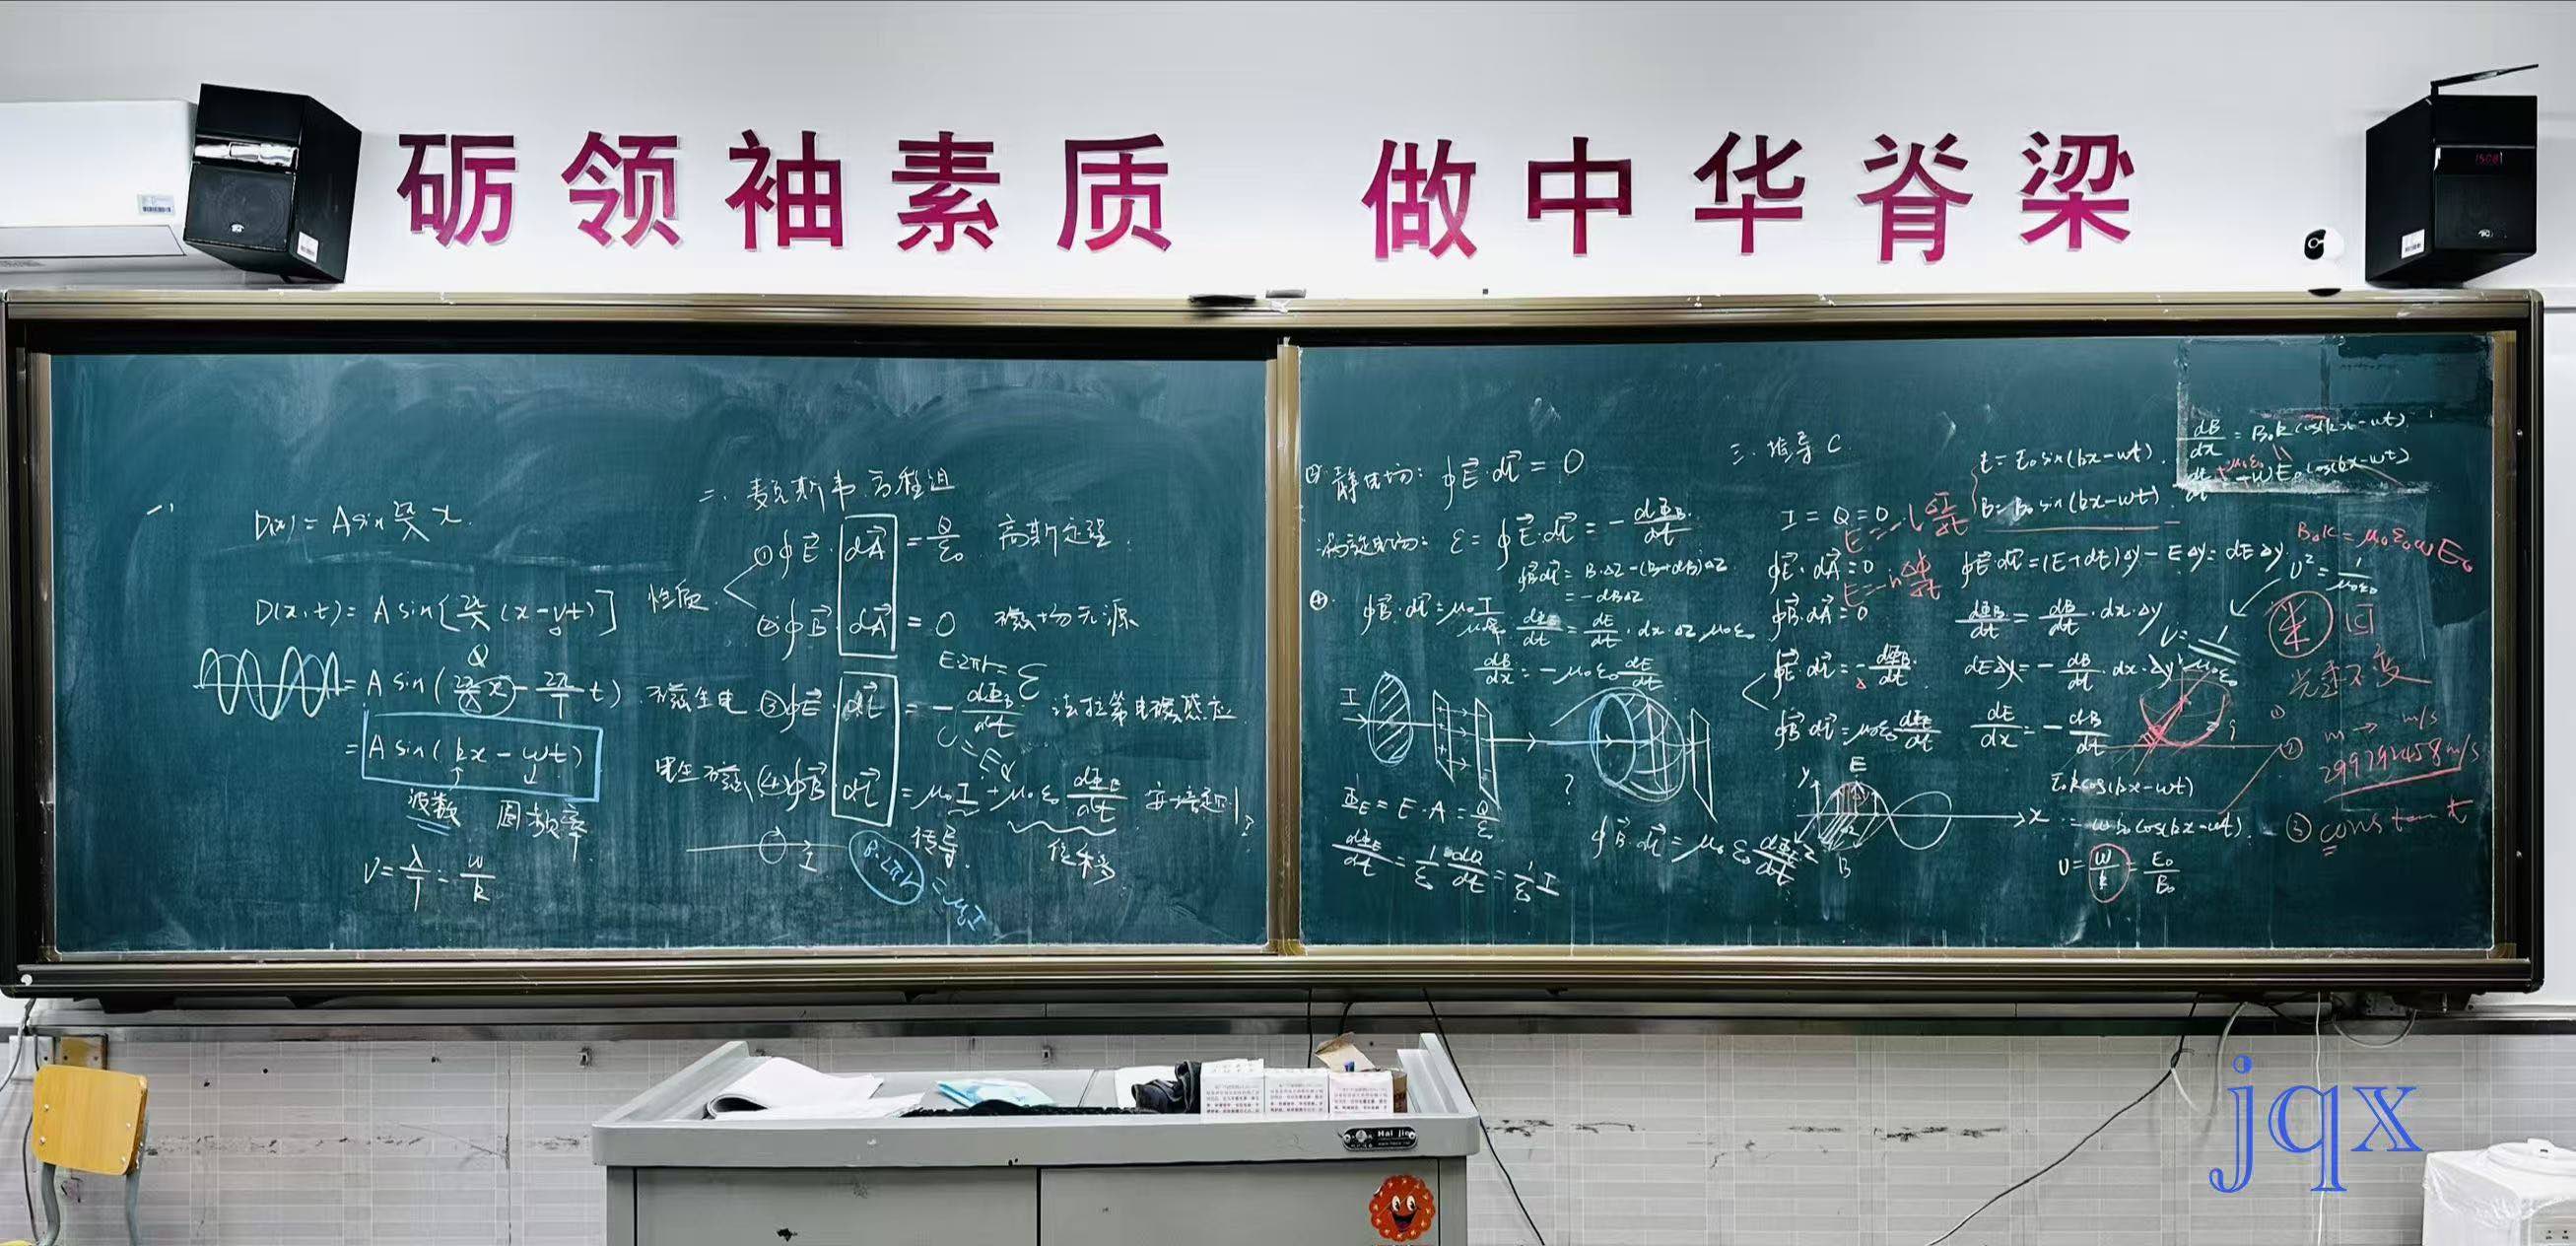 砺领袖素质 做中华脊梁
一、
D(x) = A sin 2π/λ x.
D(x,t) = A sin[2π/λ (x-vt)]
= A sin(2π/λ x - 2π/T t)
= A sin(kx - ωt)
波数 圆频率
V = λ/T = ω/k
二、麦克斯韦方程组
性质
① ∮E⃗·dA⃗ = Q/ε₀ 高斯定理.
② ∮B⃗·dA⃗ = 0 磁场无源
E2πr = ε
磁生电 ③ ∮E⃗·dl⃗ = - dΦB/dt 法拉第电磁感应
U = Ed
电生磁 (4) ∮B⃗·dl⃗ = μ₀I + μ₀ε₀ dΦE/dt
传导 位移
I
B·2πr = μ₀I
静电场: ∮E⃗·dl⃗ = 0
ε = ∮E⃗·dl⃗ = - dΦB/dt
∮B⃗dl⃗ = B·ΔZ-(B+dB)ΔZ
= -dBΔZ
④ ∮B⃗·dl⃗ = μ₀I
dΦE/dt = dE/dt·dx·ΔZ μ₀ε₀
dB/dx = -μ₀ε₀ dE/dt
I
?
ΦE = E·A = Q/ε
dΦE/dt = 1/ε dQ/dt = 1/ε I
∮B⃗·dl⃗ = μ₀ε₀ dΦE/dt
三、推导C.
I = Q = 0
∮E⃗·dA⃗ = 0
∮B⃗·dA⃗ = 0
∮E⃗·dl⃗ = - dΦB/dt
∮B⃗·dl⃗ = μ₀ε₀ dΦE/dt
E = L ΔI/Δt
E = n ΔΦ/Δt
y E x B
E = E₀ sin(kx-ωt).
B = B₀ sin(kx-ωt)
∮E⃗·dl⃗ = (E+dE)Δy - EΔy = dEΔy
dΦB/dt = dB/dt·dx·Δy
dEΔy = - dB/dt·dx·Δy
dE/dx = - dB/dt
E₀k cos(kx-ωt)
= ωB₀ cos(kx-ωt).
U = ω/k = E₀/B₀
dB/dx = B₀k cos(kx-ωt)
B₀k = μ₀ε₀ωE₀
U² = 1/μ₀ε₀
光速不变
① m → m/s
② 299792458m/s
③ constant
Hai jie
jqx